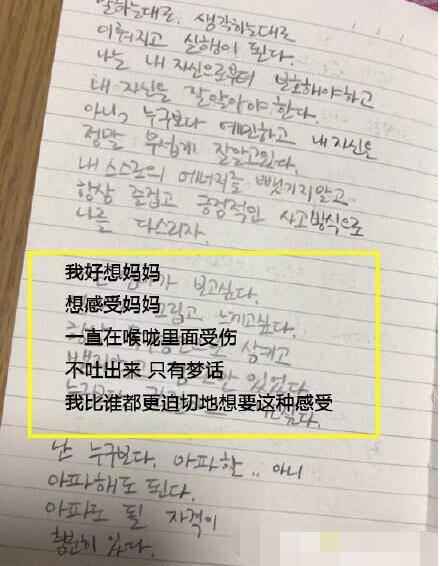 말하는대로, 생각하는대로
이뤄지고 실행이 된다.
나는 내 자신으로부터 보호해야하고
내 자신을 잘 알아야 한다.
아니, 누구보다 예민하고 내 자신은
정말 무섭게 잘알고있다.
내 스스로의 에너지를 뺏기지말고
항상 즐겁고 긍정적인 사고방식으로
나를 다스리자.
보고싶다.
我好想妈妈
그립고 느끼고싶다.
想感受妈妈
삼키고
一直在喉咙里面受伤
不吐出来 只有梦话
我比谁都更迫切地想要这种感受
난 누구보다. 아파한.. 아니
아파해도 된다.
아파도 될 자격이
충분히 있다.